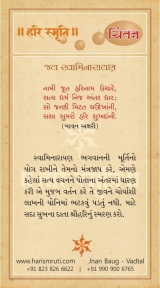 ॥ हरि स्मृति ॥
ચિંતન
જય સ્વામિનારાયણ
નામી જૂત હરિનામ ઉચારે,
સત્ય ધર્મ નિજ અંતર ધારે;
સો જનહી મિટત ચઉખાંની,
સદા સુમરો હરિ સુખદાની.
(પાવન અક્ષરી)
સ્વામિનારાયણ ભગવાનની મૂર્તિનો
યોગ રાખીને તેમનો મંત્રજાપ કરે, એમણે
કહેલાં સત્ય વચનને પોતાના અંતરમાં ધારણ
કરી એ મુજબ વર્તન કરે તે જીવને ચોર્યાશી
લાખની યોનિમાં ભટકવું પડતું નથી. માટે
સદા સુખના દાતા શ્રીહરિનું સ્મરણ કરો.
www.harismruti.com Jnan Baug - Vadtal
+91 823 826 6622 +91 990 900 6765